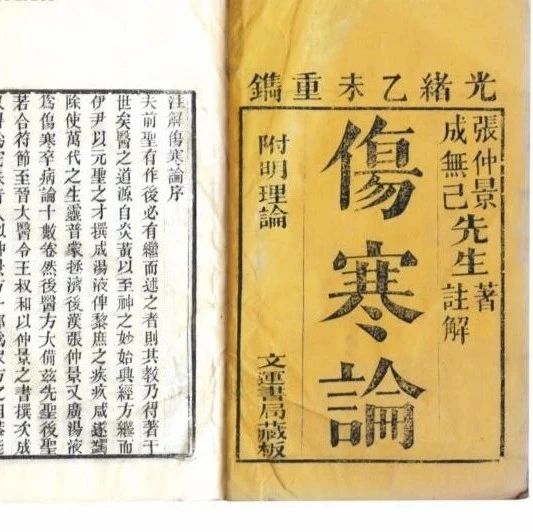 光緒乙未重鐫
張仲景著
成無己先生註解
傷寒論
附明理論
文運書局藏板
注解傷寒論序
夫前聖有作後必有繼而述之者則其教乃得著于
世矣醫之道源自炎黃以至神之妙始典經方繼而
伊尹以元聖之才撰成湯液俾黎庶之疾疢咸遂蠲
除使萬代之生靈普蒙拯濟後漢張仲景又廣湯液
爲傷寒卒病論十數卷然後醫方大備茲先聖後聖
若合符節至晉大醫令王叔和以仲景之書撰次成